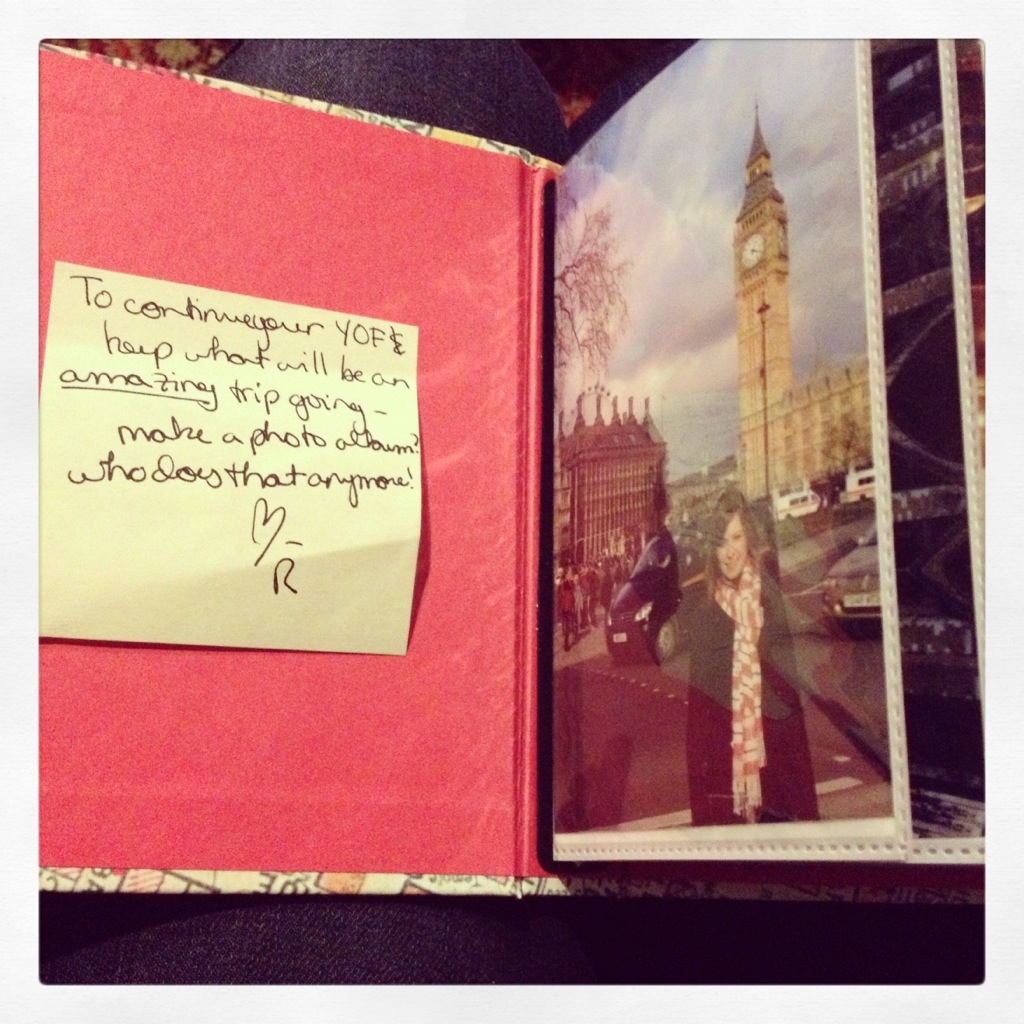 To continue your YOF &
keep what will be an
amazing trip going -
make a photo album?
who does that anymore!
♡ -
R